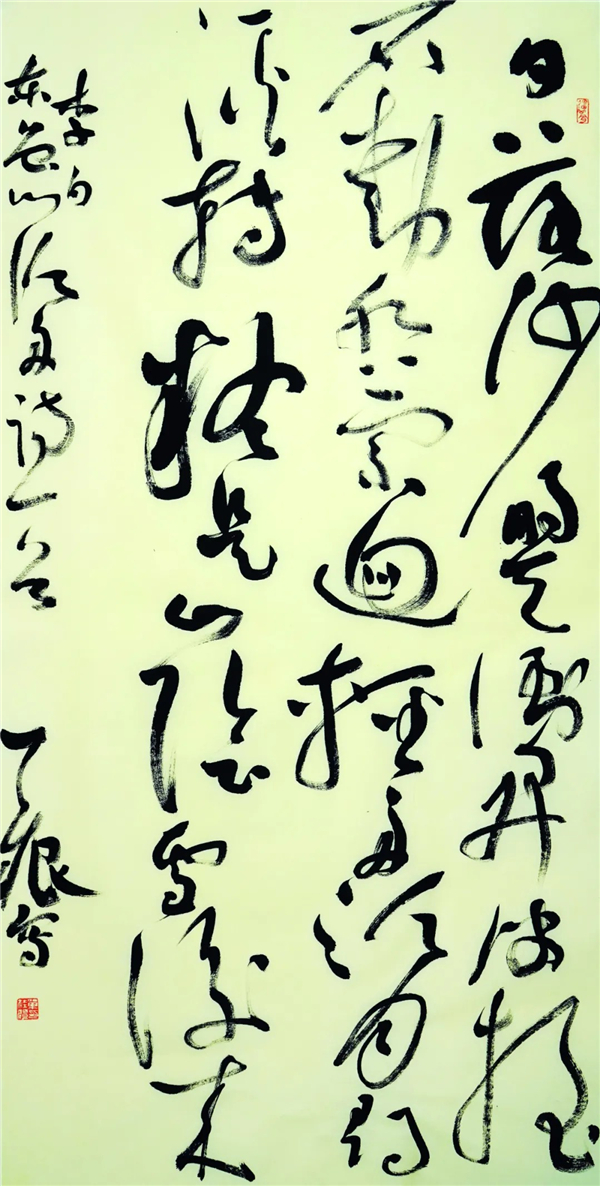 日落沙明天倒开波摇
石動水萦迴轻舟泛月寻
溪转疑是山陰雪後来
李白
东鲁门泛舟诗一首 痕写